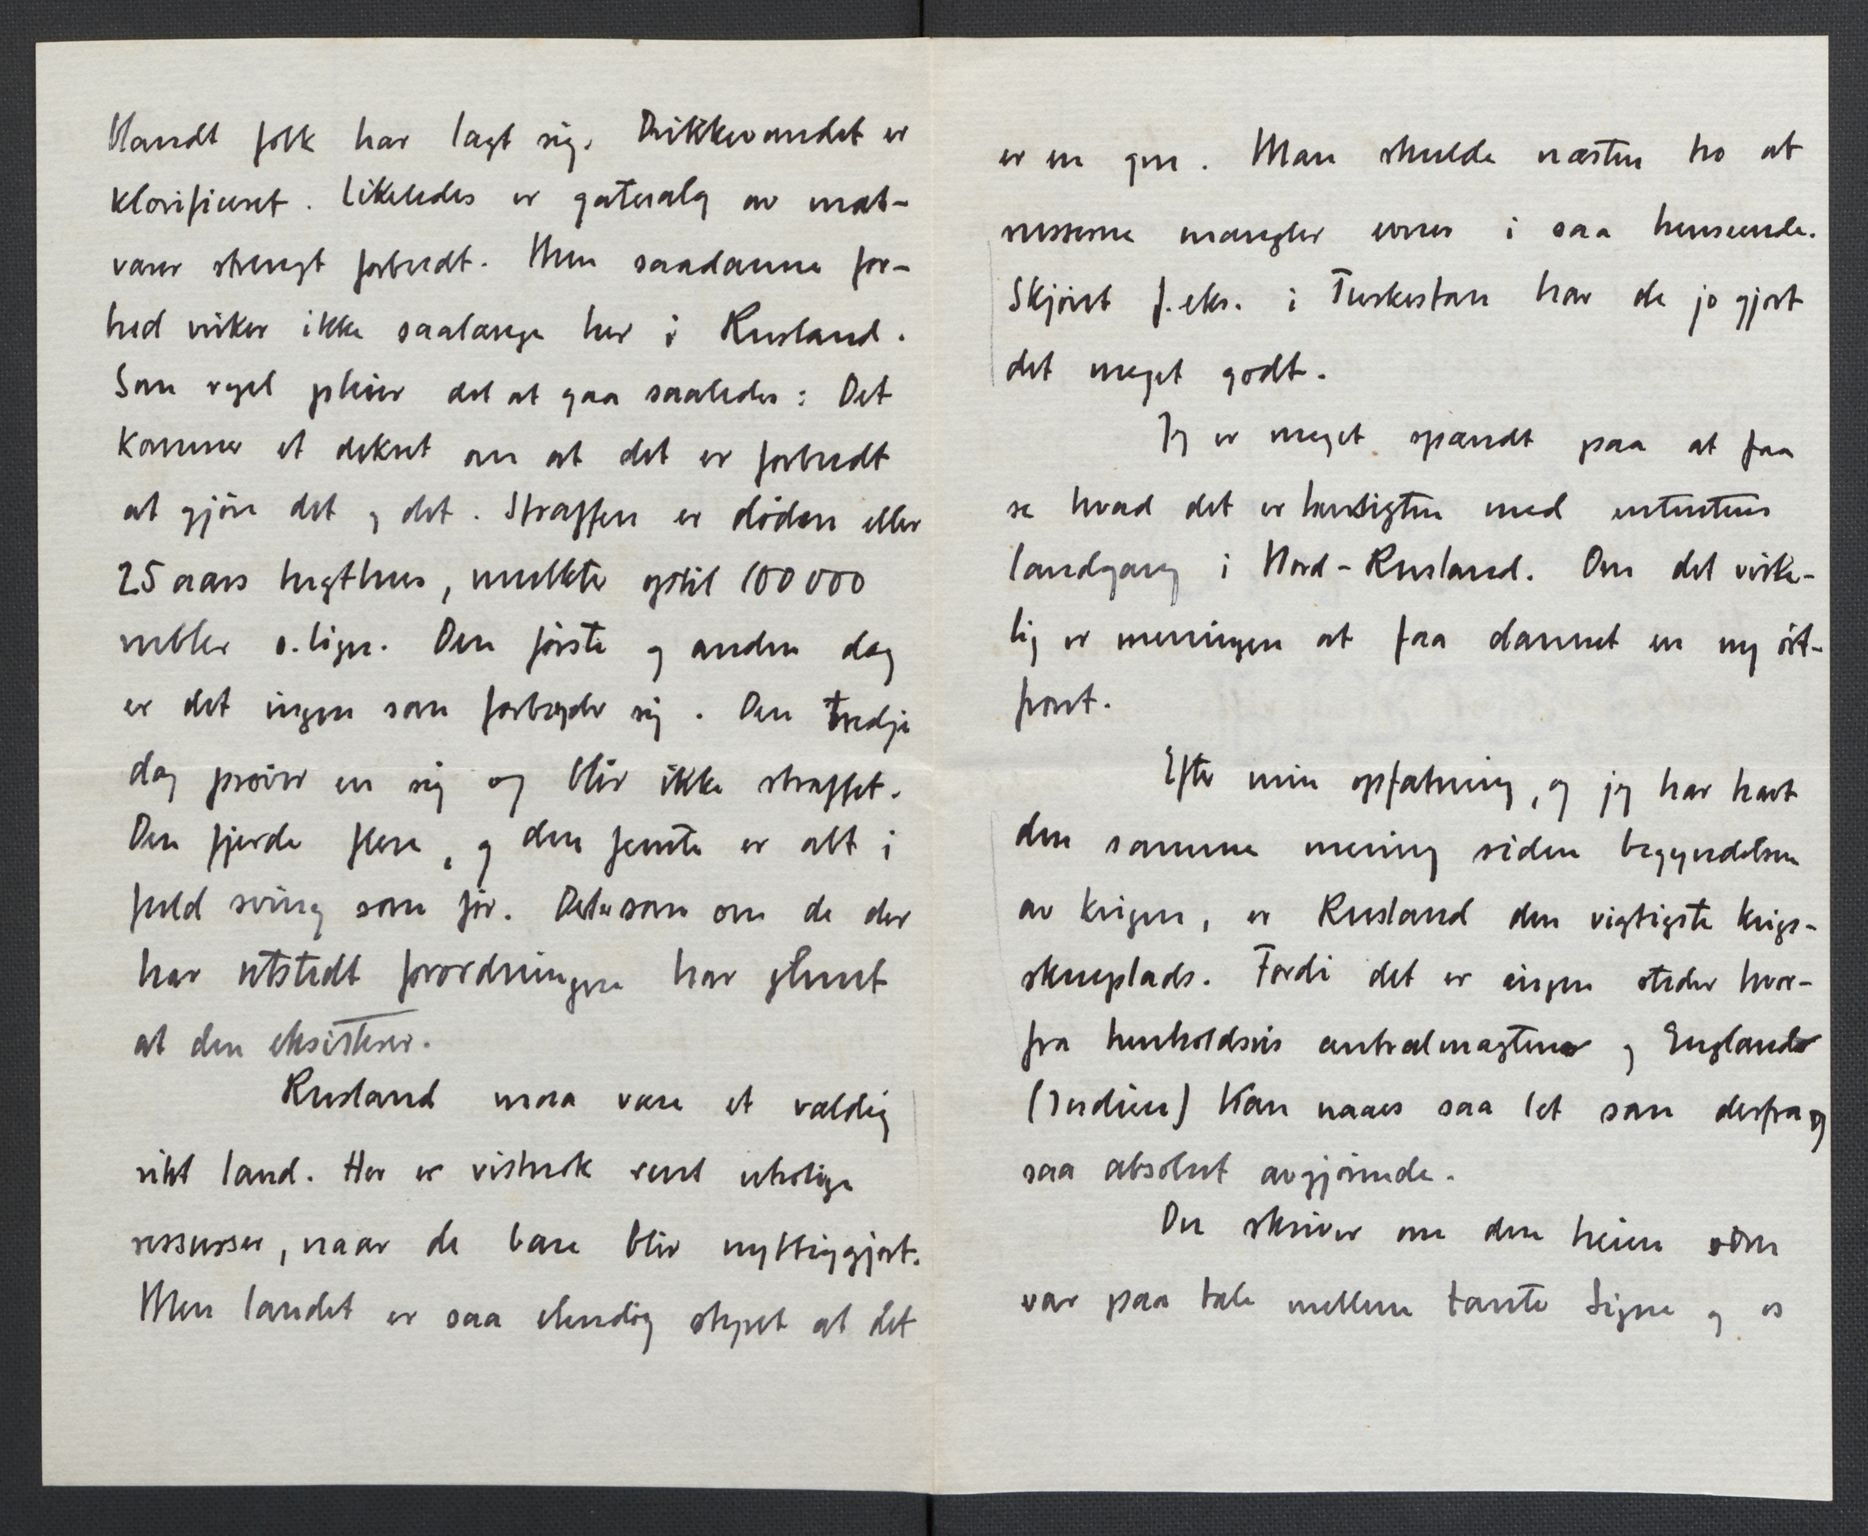 blandt folk har lagt sig. Drikkevandet er
klorificeret. Likeledes er gatesalg av mat-
varer strengt forbudt. Men saadanne for-
bud virker ikke saalænge her i Rusland.
Som regel pleier det at gaa saaledes: Det
kommer et dekret om at det er forbudt
at gjöre det og det. Straffen er döden eller
25 aars tugthus, mulkter optil 100 000
rubler o. lign. Den förste og anden dag
er det ingen som forbryder sig. Den tredje
dag pröver en sig og blir ikke straffet.
Den fjerde flere, og den femte er alt i
fuld sving som för. Det er som om de der
har utstedt forordningen har glemt
at den eksisterer.
Rusland maa være et vældig
rikt land. Her er vistnok rent utrolige
ressurser, naar de bare blir nyttiggjort.
Men landet er saa elendig styret at det
er en gru. Man skulde næsten tro at
russerne mangler evner i saa henseende.
Skjönt f. eks. i Turkestan har de jo gjort
det meget godt.
Jeg er meget spændt paa at faa
se hvad det er hensigten med ententens
landgang i Nord-Rusland. Om det virke-
lig er meningen at faa dannet en ny öst-
front.
Efter min opfatning, og jeg har havt
den samme mening siden begyndelsen
av krigen, er Rusland den vigtigste krigs-
skueplads. Fordi det er ingen steder hvor-
fra henholdsvis centralmagtene og England
(Indien) kan naaes saa let som derfra og
saa absolut avgjörende.
Du skriver om den heien som
var paa tale mellem tante Signe og os